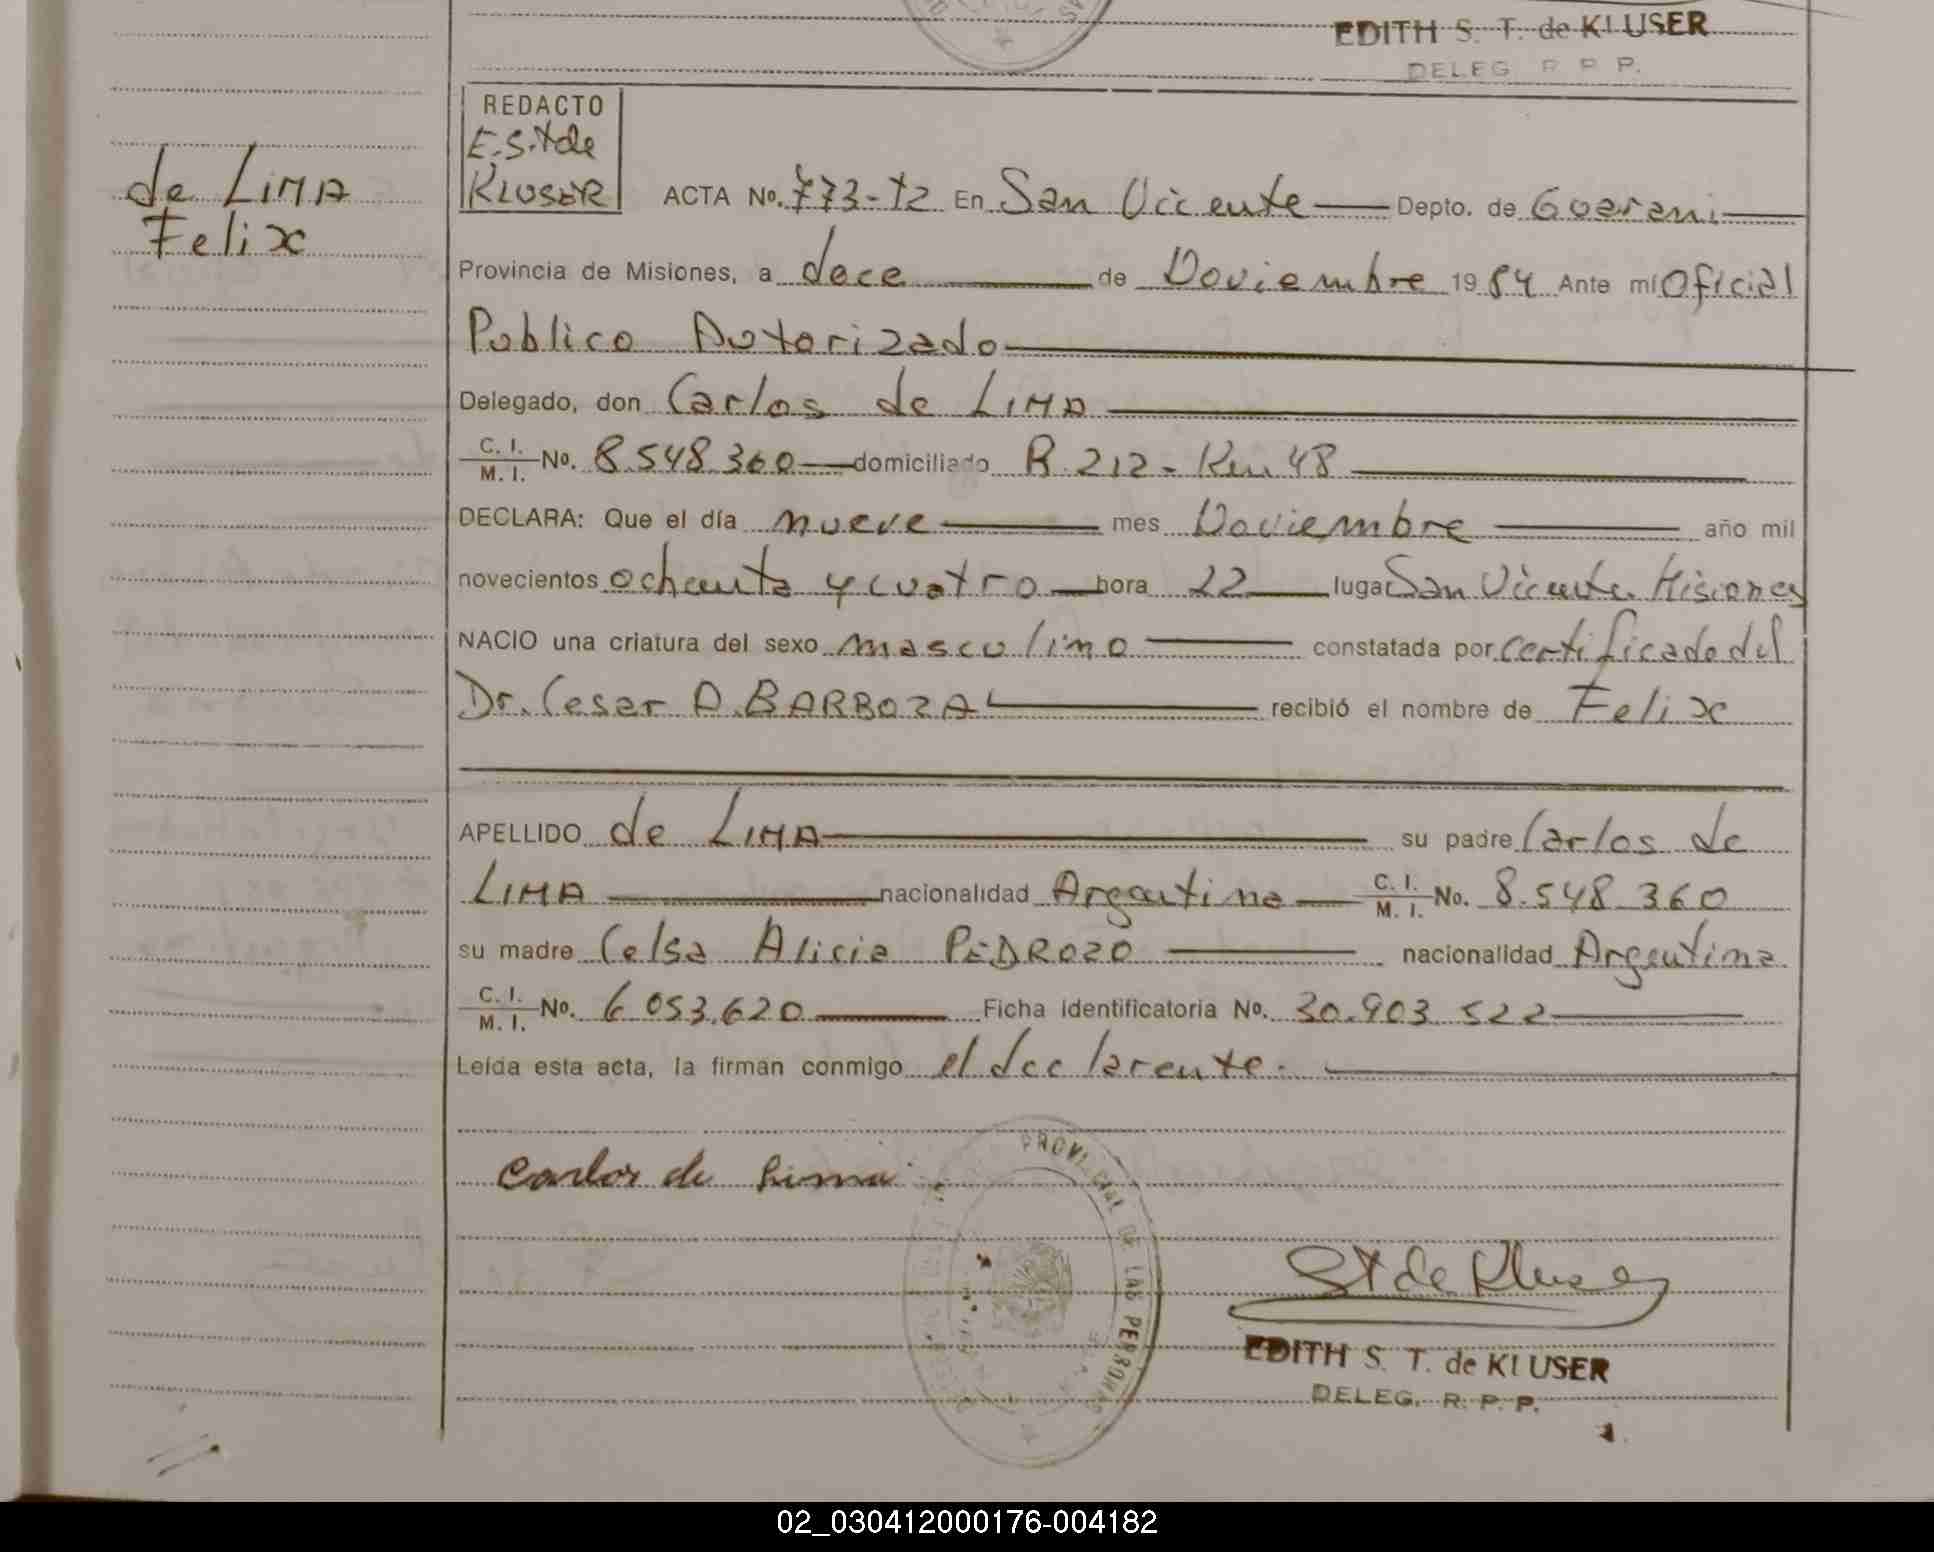 EDITH S. T. de KLUSER
DELEG R. P. P.
REDACTO
E.S.t de
KLUSER
de LIMA
Felix
ACTA No. 773-t2 En San Vicente Depto. de Guarani
Provincia de Misiones, a doce de Noviembre 1984 Ante mi Oficial
Publico Autorizado
Delegado, don Carlos de LIMA
C. I.
M. I. No. 8.548.360 domiciliado R.212- Km 48
DECLARA: Que el día nueve mes Noviembre año mil
novecientos ochenta y cuatro hora 22 lugar San Vicente Misiones
NACIO una criatura del sexo masculino constatada por certificado del
Dr. Cesar A. BARBOZA recibió el nombre de Felix
APELLIDO de LIMA su padre Carlos de
LIMA nacionalidad Argentina C. I. M. I. No. 8.548.360
su madre Celsa Alicia PEDROZO nacionalidad Argentina
C. I.
M. I. No. 6.053.620 Ficha Identificatoria No. 30.903.522
Leída esta acta, la firman conmigo el declarente.
Carlos de Lima
PROVINCIAL DE LAS PERSONAS
ST de Kluser
EDITH S. T. de KLUSER
DELEG. R. P. P.
02_030412000176-004182